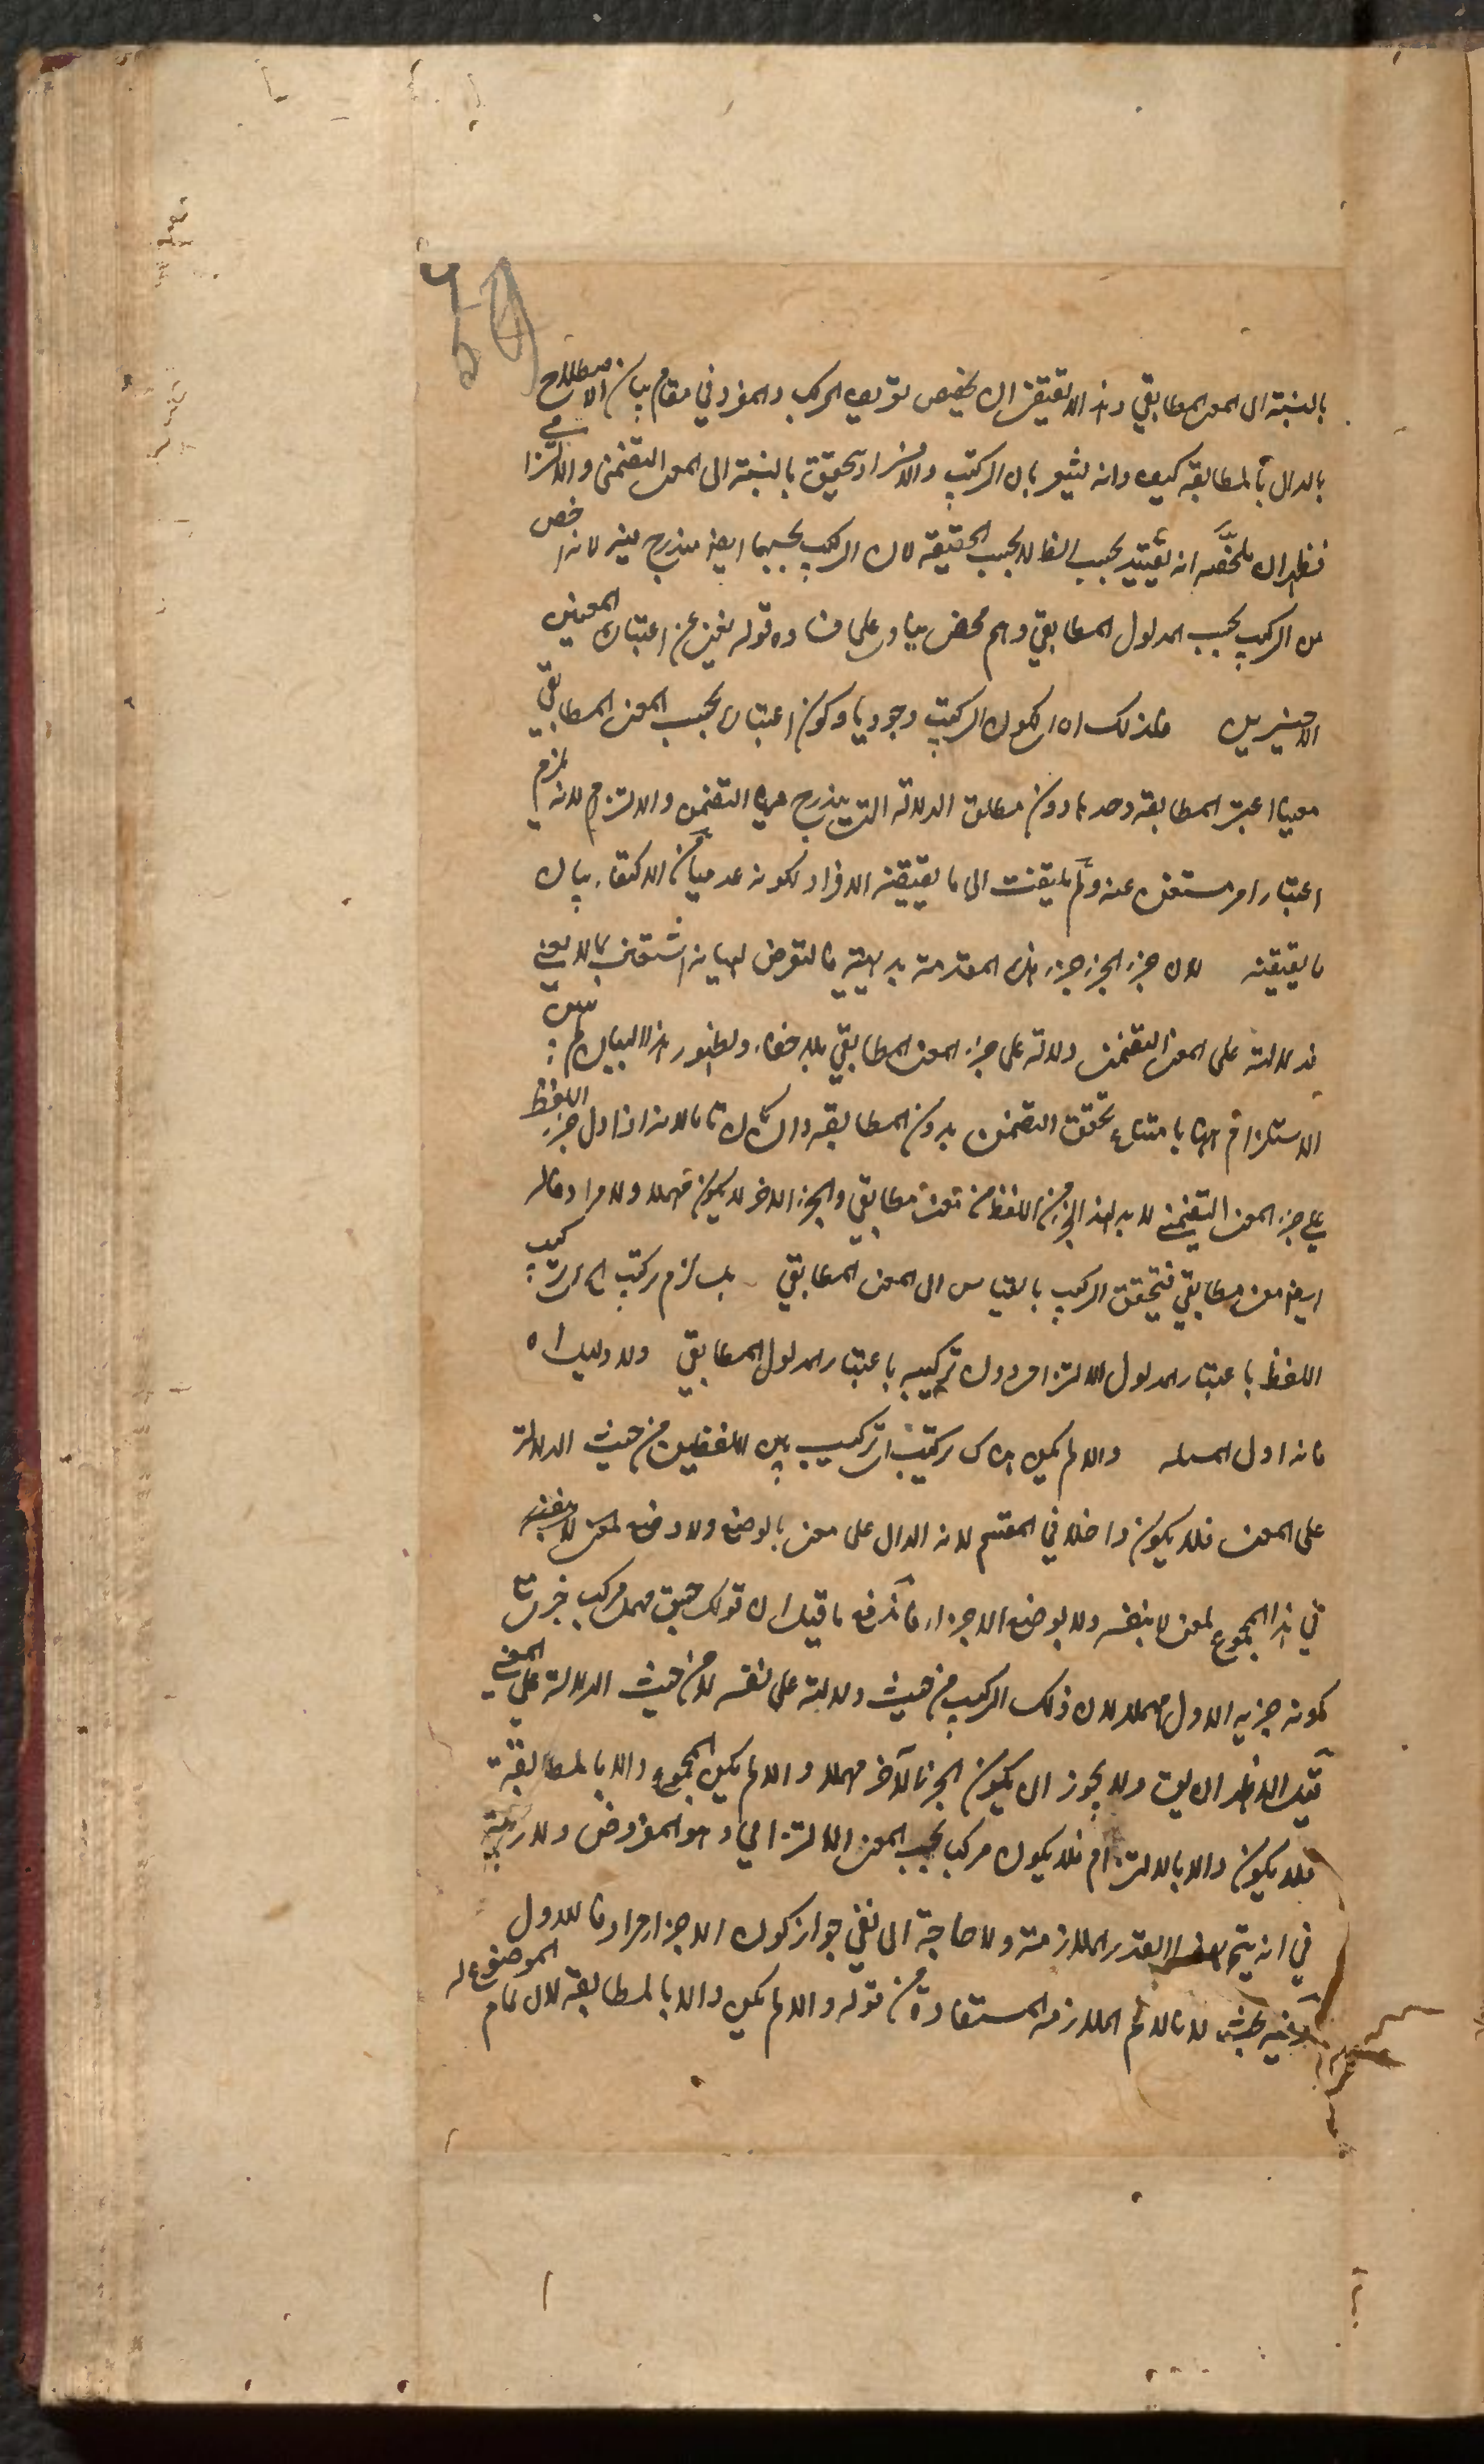 بالنسبة الى المعنى المطابقي وهذا لا يقتضي ان يخصص تعريف المركب والمفرد في مقام بيان الاصطلاح
بالدال بالمطابقة كيف وانه يشعر بان التركيب والافراد يتحقق بالنسبة الى المعنى التضمني والالتزامي
فظهر ان ملخصه انه تقييد بحسب اللفظ لا بحسب الحقيقة لان التركيب بحسبهما ايضا مندرج فيه لانه اخص
من التركيب بحسب المدلول المطابقي وهم محض ينادي على فساده قوله يغني عن اعتبار المعنيين
الاخيرين فلذلك اي لكون التركيب وجوديا وكون اعتباره بحسب المعنى المطابقي
مغنيا اعتبر المطابقة وحدها دون مطلق الدلالة التي يندرج فيها التضمن والالتزام لانه يلزم
اعتبار امر مستغنى عنه ولم يلتفت الى ما يقتضيه الافراد لكونه عدميا من الاكتفاء ببيان
ما يقتضيه لان جزء الجزء جزء هذه المقدمة بديهية فالتعرض لبيانه اشتغال بما لا يعني
فدلالته على المعنى التضمني دلالة على جزء المعنى المطابقي بلا خفاء ولظهور هذا البيان لم يبين
الاستلزام اما بامتناع تحقق التضمن بدون المطابقة وان كان تاما لانه اذا دل جزء اللفظ
على جزء المعنى التضمني لا بد لهذا الجزء من اللفظ من معنى مطابقي والجزء الآخر لا يكون مهملا ولا مرادفا له
ايضا معنى مطابقي فيتحقق التركيب بالقياس الى المعنى المطابقي بل يلزم تركيب اي تركيب
اللفظ باعتبار المدلول الالتزامي دون تركيبه باعتبار المدلول المطابقي ولا دليل اه
فانه اول المسئلة والا لم يكن هناك تركيب اي تركيب بين اللفظين من حيث الدلالة
على المعنى فلا يكون داخلا في المقسم لانه الدال على معنى بالوضع ولا وضع لمعنى لا بنفسه
في هذا المجموع لمعنى لا بنفسه ولا بوضع الاجزاء فاندفع ما قيل ان قولك جسق مهمل مركب خبري مع
كونه جزءيه الاول مهملا لان ذلك التركيب من حيث دلالته على نفسه لا من حيث الدلالة على المعنى
قيل الاظهر ان يقال ولا يجوز ان يكون الجزء الآخر مهملا والا لم يكن المجموع دالا بالمطابقة
فلا يكون دالا بالالتزام فلا يكون مركبا بحسب المعنى الالتزامي وهو المفروض ولا ريبة
في انه يتم بهذا القدر الملازمة ولا حاجة الى نفي جواز كون الاجزاء مرادفا للاول
وفيه بحث لانا لا نم الملازمة المستفادة من قوله والا لم يكن دالا بالمطابقة لان تمام الموضوع له